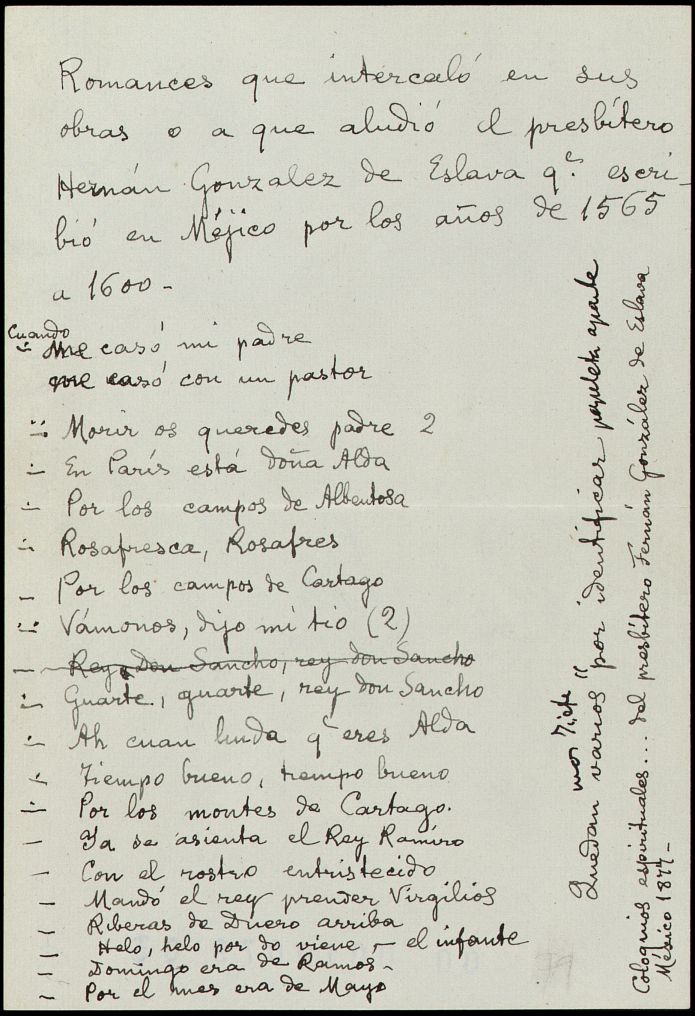 Romances que intercaló en sus
obras o a que aludió el presbítero
Hernán Gonzalez de Eslava q.e escri-
bió en Méjico por los años de 1565
a 1600-
Cuando
me casó mi padre
me casó con un pastor
Morir os queredes padre 2
En París está doña Alda
Por los campos de Albentosa
Rosafresca, Rosafres
Por los campos de Cartago
Vámonos, dijo mi tio (2)
Rey don Sancho, rey don Sancho
Guarte, guarte, rey don Sancho
Ah cuan linda q eres Alda
Tiempo bueno, tiempo bueno
Por los montes de Cartago.
Ya se asienta el Rey Ramiro
Con el rostro entristecido
Mandó el rey prender Virgilios
Riberas de Duero arriba
Helo, helo por do viene - el infante
Domingo era de Ramos-
Por el mes era de Mayo
Quedan varios por identificar papeleta aparte
Coloquios espirituales... del presbítero Fernán González de Eslava
México 1877-